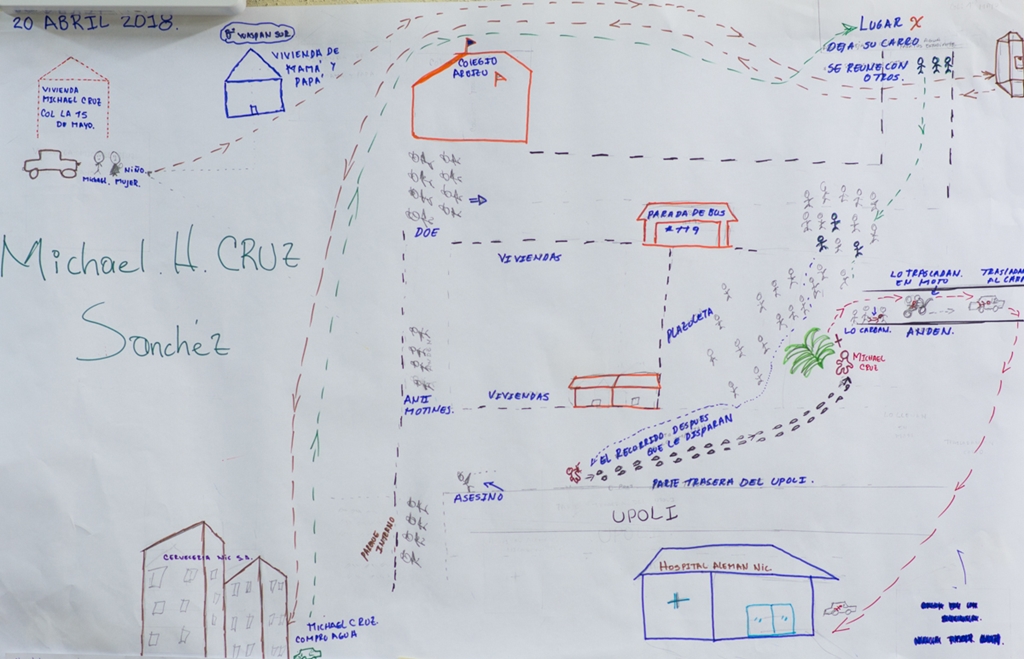 20 ABRIL 2018.
WASPAN SUR
VIVIENDA DE
MAMÁ Y
PAPÁ
VIVIENDA
MICHAEL CRUZ
COL LA 15
DE MAYO.
NIÑO.
MICHAEL. MUJER.
COLEGIO
LUGAR X
DEJA SU CARRO
SE REUNE CON
OTROS.
DOE
PARADA DE BUS
# 119
VIVIENDAS
Michael. H. CRUZ
Sanchéz
PLAZOLETA
LO TRASLADAN.
EN MOTO
TRASLADAN
LO CARGAN.
ANDEN.
MICHAEL
CRUZ
ANTI
MOTINES.
VIVIENDAS
EL RECORRIDO DESPUES
QUE LE DISPARAN
ASESINO
PARTE TRASERA DEL UPOLI.
UPOLI
PARQUE INTERNO
CERVECERIA NIC S.A.
HOSPITAL ALEMAN NIC
MICHAEL CRUZ.
COMPRO AGUA